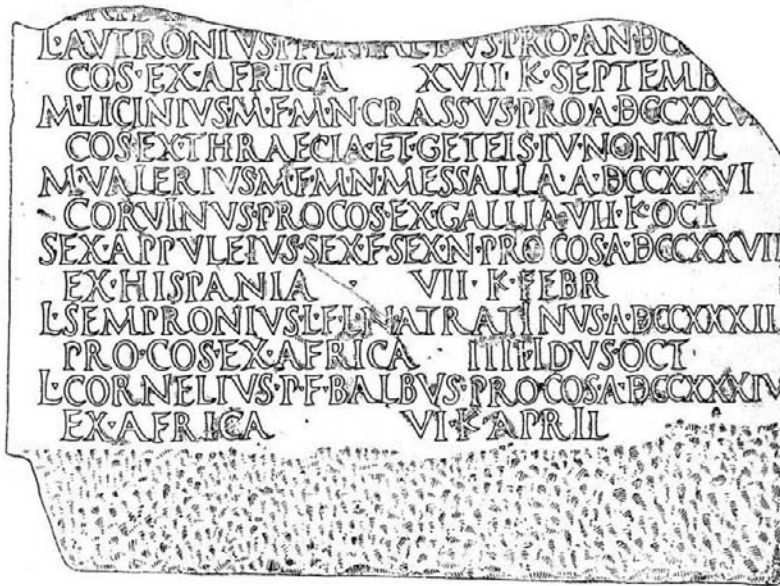 L·AVTRONIVS PRO·AN·DCC
COS·EX·AFRICA XVII·K·SEPTEMB
M·LICINIVS·M·F·M·N·CRASSVS·PRO·A·DCCXXVI
COS·EX·THRAECIA·ET·GETEIS·IV·NON·IVL
M·VALERIVS·M·F·M·N·MESSALLA·A·DCCXXVI
CORVINVS·PRO·COS·EX·GALLIA·VII·K·OCT
SEX·APPVLEIVS·SEX·F·SEX·N·PRO·COS·A·DCCXXVII
EX·HISPANIA · VII·K·FEBR
L·SEMPRONIVS·L·F·L·N·ATRATINVS·A·DCCXXXII
PRO·COS·EX·AFRICA IIII·IDVS·OCT
L·CORNELIVS·P·F·BALBVS·PRO·COS·A·DCCXXXIV
EX·AFRICA VI·K·APRIL